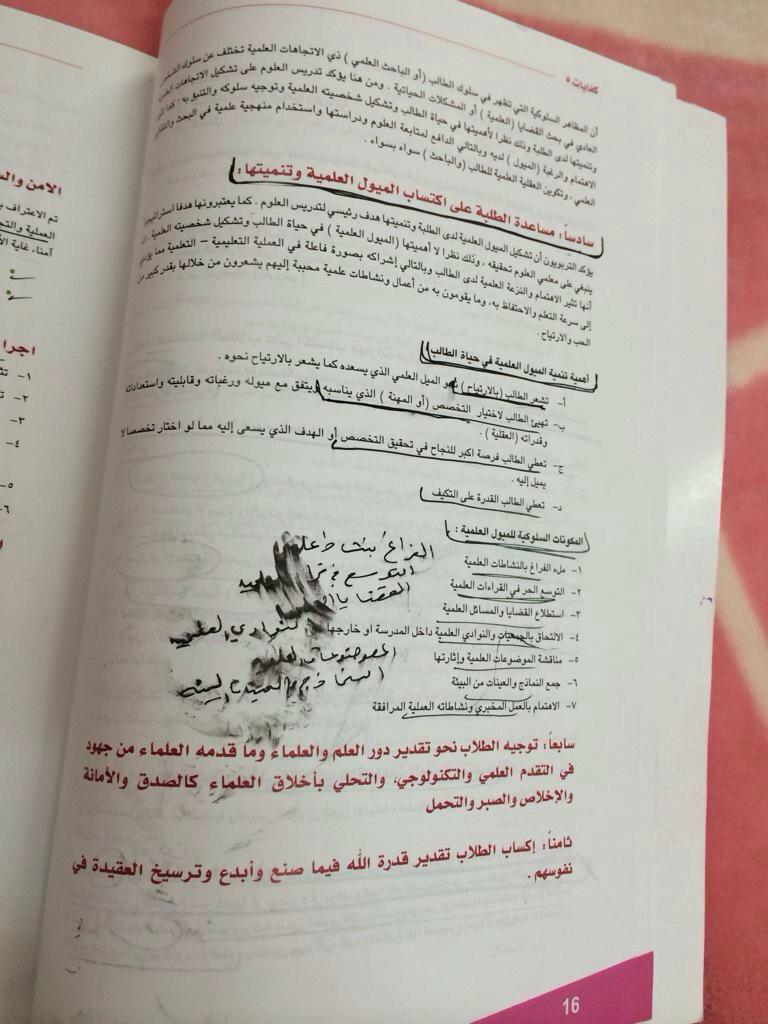 كفايات
أن المظاهر السلوكية التي تظهر في سلوك الطالب (أو الباحث العلمي) ذي الاتجاهات العلمية تختلف عن سلوك
العادي في بحث القضايا (العلمية) أو المشكلات الحياتية . ومن هنا يؤكد تدريس العلوم على تشكيل الاتجاهات
وتنميتها لدى الطلبة وذلك نظرا لأهميتها في حياة الطالب وتشكيل شخصيته العلمية وتوجيه سلوكه والتنبؤ به ؛ كما
الاهتمام والرغبة (الميول) لديه وبالتالي الدافع لمتابعة العلوم ودراستها واستخدام منهجية علمية في البحث
العلمي ، وتكوين العقلية العلمية للطالب (والباحث) سواء بسواء .
سادساً: مساعدة الطلبة على اكتساب الميول العلمية وتنميتها:
يؤكد التربويون أن تشكيل الميول العلمية لدى الطلبة وتنميتها هدف رئيسي لتدريس العلوم . كما يعتبرونها هدفا استراتيجيا
ينبغي على معلمي العلوم تحقيقه ، وذلك نظرا لا أهميتها (الميول العلمية) في حياة الطالب وتشكيل شخصيته العلمية .
أنها تثير الاهتمام والنزعة العلمية لدى الطالب وبالتالي إشراكه بصورة فاعلة في العملية التعليمية – التعلمية مما يؤدي
إلى سرعة التعلم والاحتفاظ به، وما يقومون به من أعمال ونشاطات علمية محببة إليهم يشعرون من خلالها بقدر كبير من
الحب والارتياح .
أهمية تنمية الميول العلمية في حياة الطالب
أ- تشعر الطالب (بالارتياح) نحو الميل العلمي الذي يسعده كما يشعر بالارتياح نحوه .
ب- تهيئ الطالب لاختيار التخصص (أو المهنة) الذي يناسبه ويتفق مع ميوله ورغباته وقابليته واستعداداته
وقدراته (العقلية) .
ج- تعطي الطالب فرصة اكبر للنجاح في تحقيق التخصص أو الهدف الذي يسعى إليه مما لو اختار تخصصا لا
يميل إليه .
د- تعطي الطالب القدرة على التكيف
المكونات السلوكية للميول العلمية :
١- ملء الفراغ بالنشاطات العلمية
٢- التوسع الحر في القراءات العلمية
٣- استطلاع القضايا والمسائل العلمية
٤- الالتحاق بالجمعيات والنوادي العلمية داخل المدرسة او خارجها
٥- مناقشة الموضوعات العلمية وإثارتها
٦- جمع النماذج والعينات من البيئة
٧- الاهتمام بالعمل المخبري ونشاطاته العملية المرافقة
الفراغ
التوسع في
العلمية
سابعاً: توجيه الطلاب نحو تقدير دور العلم والعلماء وما قدمه العلماء من جهود
في التقدم العلمي والتكنولوجي، والتحلي بأخلاق العلماء كالصدق والأمانة
والإخلاص والصبر والتحمل
ثامناً: إكساب الطلاب تقدير قدرة الله فيما صنع وأبدع وترسيخ العقيدة في
نفوسهم .
16
الامن
تم الاعتراف
العملية
آمناء، غاية
اجرا
١-
٢-
٣-
٤-
٥-
٦-